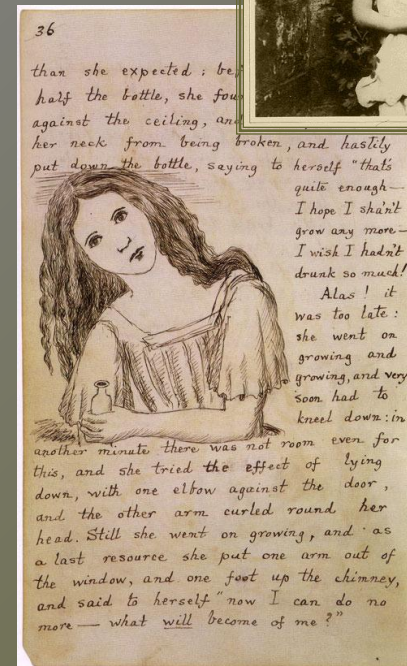 36
than she expected : be
half the bottle, she fou
against the ceiling, an
her neck from being broken, and hastily
put down the bottle, saying to herself "that's
quite enough—
I hope I shan't
grow any more—
I wish I hadn't
drunk so much!
Alas ! it
was too late :
she went on
growing and
growing, and very
soon had to
kneel down : in
another minute there was not room even for
this, and she tried the effect of lying
down, with one elbow against the door,
and the other arm curled round her
head. Still she went on growing, and as
a last resource she put one arm out of
the window, and one foot up the chimney,
and said to herself "now I can do no
more — what will become of me ?"